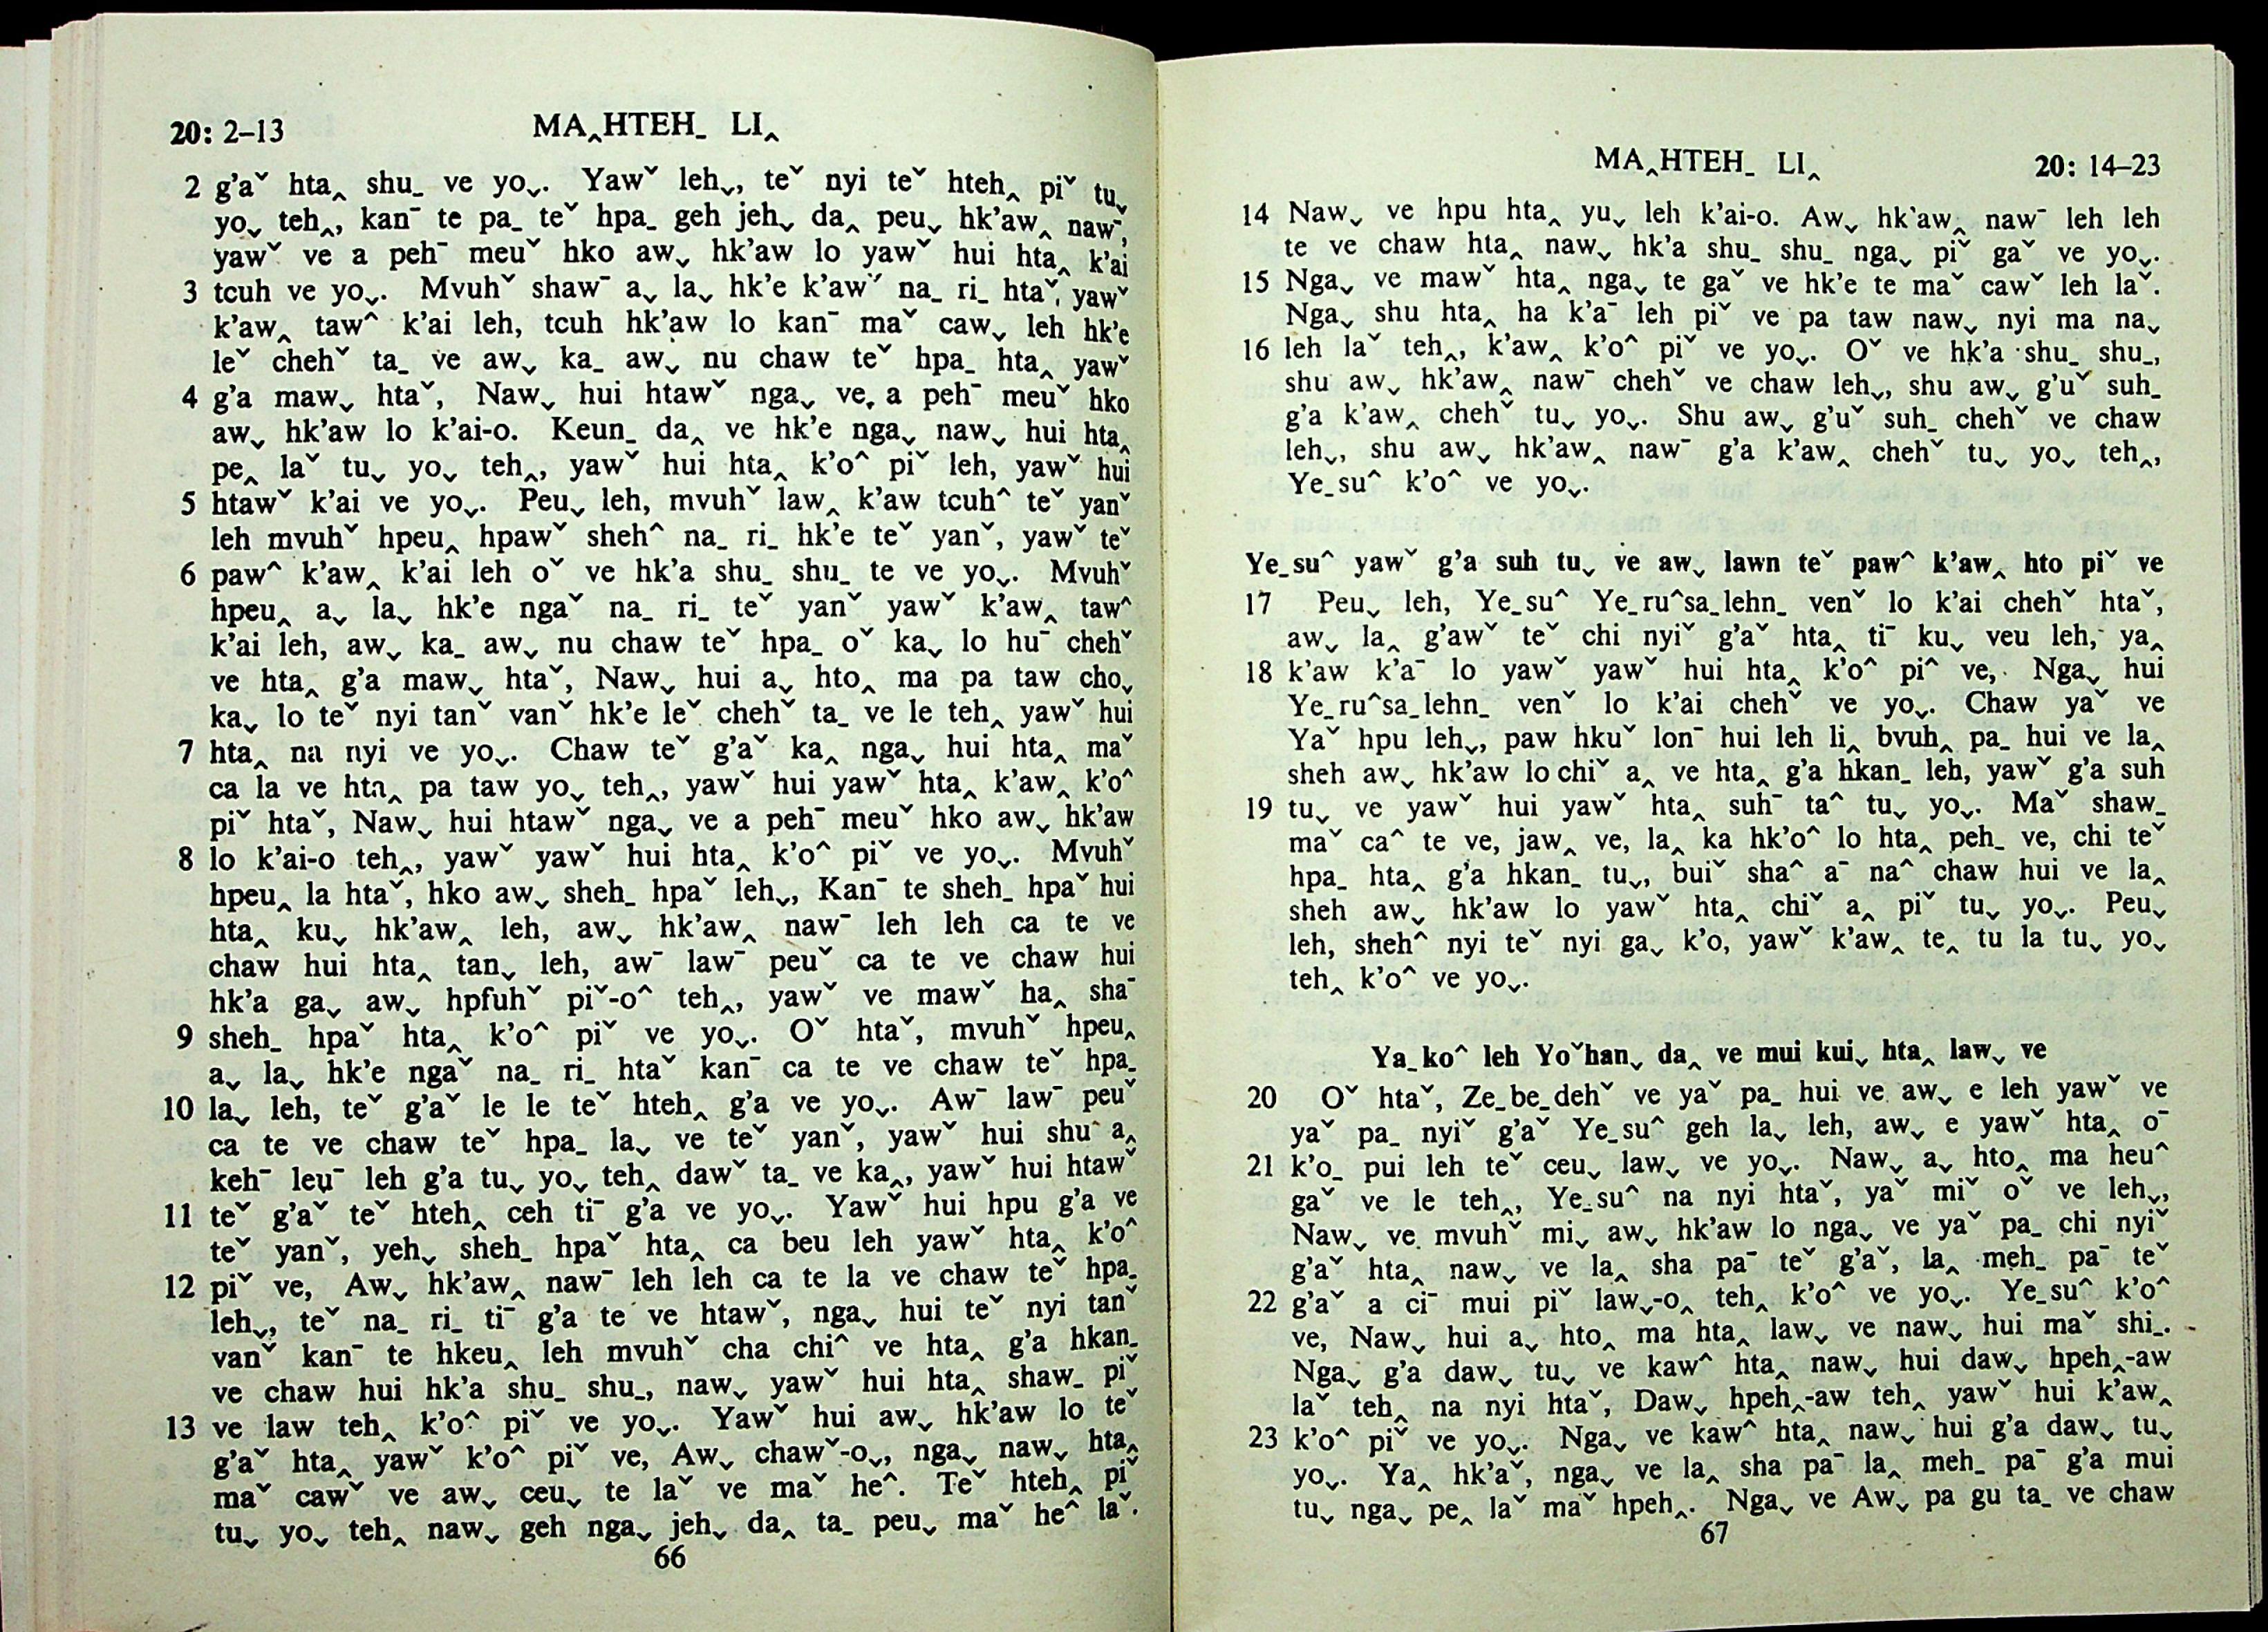 20: 2–13 MA‸HTEH_ LI‸
2 g'aˇ hta‸ shu_ ve yoˬ. Yawˇ lehˬ, teˇ nyi teˇ hteh‸ piˇ tuˬ
yoˬ teh‸, kan¯ te pa_ teˇ hpa_ geh jehˬ da‸ peuˬ hk'aw‸ naw¯,
yawˇ ve a peh¯ meuˇ hko awˬ hk'aw lo yawˇ hui hta‸ k'ai
3 tcuh ve yoˬ. Mvuhˇ shaw¯ aˬ laˬ hk'e k'awˇ na_ ri_ htaˇ, yawˇ
k'aw‸ taw^ k'ai leh, tcuh hk'aw lo kan¯ maˇ cawˬ leh hk'e
leˇ chehˇ ta_ ve awˬ ka_ awˬ nu chaw teˇ hpa_ hta‸ yawˇ
4 g'a mawˬ htaˇ, Nawˬ hui htawˇ ngaˬ ve, a peh¯ meuˇ hko
awˬ hk'aw lo k'ai-o. Keun_ da‸ ve hk'e ngaˬ nawˬ hui hta‸
pe‸ laˇ tuˬ yoˬ teh‸, yawˇ hui hta‸ k'o^ piˇ leh, yawˇ hui
5 htawˇ k'ai ve yoˬ. Peuˬ leh, mvuhˇ law‸ k'aw tcuh^ teˇ yanˇ
leh mvuhˇ hpeu‸ hpawˇ sheh^ na_ ri_ hk'e teˇ yanˇ, yawˇ teˇ
6 paw^ k'aw‸ k'ai leh oˇ ve hk'a shu_ shu_ te ve yoˬ. Mvuhˇ
hpeu‸ aˬ laˬ hk'e ngaˇ na_ ri_ teˇ yanˇ yawˇ k'aw‸ taw^
k'ai leh, awˬ ka_ awˬ nu chaw teˇ hpa_ oˇ kaˬ lo hu¯ chehˇ
ve hta‸ g'a mawˬ htaˇ, Nawˬ hui aˬ hto‸ ma pa taw choˬ
kaˬ lo teˇ nyi tanˇ vanˇ hk'e leˇ chehˇ ta_ ve le teh‸ yawˇ hui
7 hta‸ na nyi ve yoˬ. Chaw teˇ g'aˇ ka‸ ngaˬ hui hta‸ maˇ
ca la ve hta‸ pa taw yoˬ teh‸, yawˇ hui yawˇ hta‸ k'aw‸ k'o^
piˇ htaˇ, Nawˬ hui htawˇ ngaˬ ve a peh¯ meuˇ hko awˬ hk'aw
8 lo k'ai-o teh‸, yawˇ yawˇ hui hta‸ k'o^ piˇ ve yoˬ. Mvuhˇ
hpeu‸ la htaˇ, hko awˬ sheh_ hpaˇ lehˬ, Kan¯ te sheh_ hpaˇ hui
hta‸ kuˬ hk'aw‸ leh, awˬ hk'aw‸ naw¯ leh leh ca te ve
chaw hui hta‸ tanˬ leh, aw¯ law¯ peuˇ ca te ve chaw hui
hk'a gaˬ awˬ hpfuhˇ piˇ-o^ teh‸, yawˇ ve mawˇ ha‸ sha¯
9 sheh_ hpaˇ hta‸ k'o^ piˇ ve yoˬ. Oˇ htaˇ, mvuhˇ hpeu‸
aˬ laˬ hk'e ngaˇ na_ ri_ htaˇ kan¯ ca te ve chaw teˇ hpa_
10 laˬ leh, teˇ g'aˇ le le teˇ hteh‸ g'a ve yoˬ. Aw¯ law¯ peuˇ
ca te ve chaw teˇ hpa_ laˬ ve teˇ yanˇ, yawˇ hui shu¯ a‸
keh¯ leu¯ leh g'a tuˬ yoˬ teh‸ dawˇ ta_ ve ka‸, yawˇ hui htawˇ
11 teˇ g'aˇ teˇ hteh‸ ceh ti¯ g'a ve yoˬ. Yawˇ hui hpu g'a ve
teˇ yanˇ, yehˬ sheh_ hpaˇ hta‸ ca beu leh yawˇ hta‸ k'o^
12 piˇ ve, Awˬ hk'aw‸ naw¯ leh leh ca te la ve chaw teˇ hpa_
lehˬ, teˇ na_ ri_ ti¯ g'a te ve htawˇ, ngaˬ hui teˇ nyi tanˇ
vanˇ kan¯ te hkeu‸ leh mvuhˇ cha chi^ ve hta‸ g'a hkan_
ve chaw hui hk'a shu_ shu_, nawˬ yawˇ hui hta‸ shaw_ piˇ
13 ve law teh‸ k'o^ piˇ ve yoˬ. Yawˇ hui awˬ hk'aw lo teˇ
g'aˇ hta‸ yawˇ k'o^ piˇ ve, Awˬ chawˇ-oˬ, ngaˬ nawˬ hta‸
maˇ cawˇ ve awˬ ceuˬ te laˇ ve maˇ he^. Teˇ hteh‸ piˇ
tuˬ yoˬ teh‸ nawˬ geh ngaˬ jehˬ da‸ ta_ peuˬ maˇ he^ laˇ.
66
MA‸HTEH_ LI‸ 20: 14–23
14 Nawˬ ve hpu hta‸ yuˬ leh k'ai-o. Awˬ hk'aw‸ naw¯ leh leh
te ve chaw hta‸ nawˬ hk'a shu_ shu_ ngaˬ piˇ gaˇ ve yoˬ.
15 Ngaˬ ve mawˇ hta‸ ngaˬ te gaˇ ve hk'e te maˇ cawˇ leh laˇ.
Ngaˬ shu hta‸ ha k'a¯ leh piˇ ve pa taw nawˬ nyi ma naˬ
16 leh laˇ teh‸, k'aw‸ k'o^ piˇ ve yoˬ. Oˇ ve hk'a shu_ shu_,
shu awˬ hk'aw‸ naw¯ chehˇ ve chaw lehˬ, shu awˬ g'uˇ suh_
g'a k'aw‸ chehˇ tuˬ yoˬ. Shu awˬ g'uˇ suh_ chehˇ ve chaw
lehˬ, shu awˬ hk'aw‸ naw¯ g'a k'aw‸ chehˇ tuˬ yoˬ teh‸,
Ye_su^ k'o^ ve yoˬ.
Ye_su^ yawˇ g'a suh tuˬ ve awˬ lawn teˇ paw^ k'aw‸ hto piˇ ve
17 Peuˬ leh, Ye_su^ Ye_ru^sa_lehn_ venˇ lo k'ai chehˇ htaˇ,
awˬ la‸ g'awˇ teˇ chi nyiˇ g'aˇ hta‸ ti¯ kuˬ veu leh, ya‸
18 k'aw k'a¯ lo yawˇ yawˇ hui hta‸ k'o^ pi^ ve, Ngaˬ hui
Ye_ru^sa_lehn_ venˇ lo k'ai chehˇ ve yoˬ. Chaw yaˇ ve
Yaˇ hpu lehˬ, paw hkuˇ lon¯ hui leh li‸ bvuh‸ pa_ hui ve la‸
sheh awˬ hk'aw lo chiˇ a‸ ve hta‸ g'a hkan_ leh, yawˇ g'a suh
19 tuˬ ve yawˇ hui yawˇ hta‸ suh¯ ta^ tuˬ yoˬ. Maˇ shaw_
maˇ ca^ te ve, jaw‸ ve, la‸ ka hk'o^ lo hta‸ peh_ ve, chi teˇ
hpa_ hta‸ g'a hkan_ tuˬ, buiˇ sha^ a¯ na^ chaw hui ve la‸
sheh awˬ hk'aw lo yawˇ hta‸ chiˇ a‸ piˇ tuˬ yoˬ. Peuˬ
leh, sheh^ nyi teˇ nyi gaˬ k'o, yawˇ k'aw‸ te‸ tu la tuˬ yoˬ
teh‸ k'o^ ve yoˬ.
Ya_ko^ leh Yoˇhanˬ da‸ ve mui kuiˬ hta‸ lawˬ ve
20 Oˇ htaˇ, Ze_be_dehˇ ve yaˇ pa_ hui ve awˬ e leh yawˇ ve
yaˇ pa_ nyiˇ g'aˇ Ye_su^ geh laˬ leh, awˬ e yawˇ hta‸ o¯
21 k'o_ pui leh teˇ ceuˬ lawˬ ve yoˬ. Nawˬ aˬ hto‸ ma heu^
gaˇ ve le teh‸, Ye_su^ na nyi htaˇ, yaˇ miˇ oˇ ve lehˬ,
Nawˬ ve mvuhˇ miˬ awˬ hk'aw lo ngaˬ ve yaˇ pa_ chi nyiˇ
g'aˇ hta‸ nawˬ ve la‸ sha pa¯ teˇ g'aˇ, la‸ meh_ pa¯ teˇ
22 g'aˇ a ci¯ mui piˇ lawˬ-o‸ teh‸ k'o^ ve yoˬ. Ye_su^ k'o^
ve, Nawˬ hui aˬ hto‸ ma hta‸ lawˬ ve nawˬ hui maˇ shi_.
Ngaˬ g'a dawˬ tuˬ ve kaw^ hta‸ nawˬ hui dawˬ hpeh‸-aw
laˇ teh‸ na nyi htaˇ, Dawˬ hpeh‸-aw teh‸ yawˇ hui k'aw‸
23 k'o^ piˇ ve yoˬ. Ngaˬ ve kaw^ hta‸ nawˬ hui g'a dawˬ tuˬ
yoˬ. Ya‸ hk'aˇ, ngaˬ ve la‸ sha pa¯ la‸ meh_ pa¯ g'a mui
tuˬ ngaˬ pe‸ laˇ maˇ hpeh‸. Ngaˬ ve Awˬ pa gu ta_ ve chaw
67